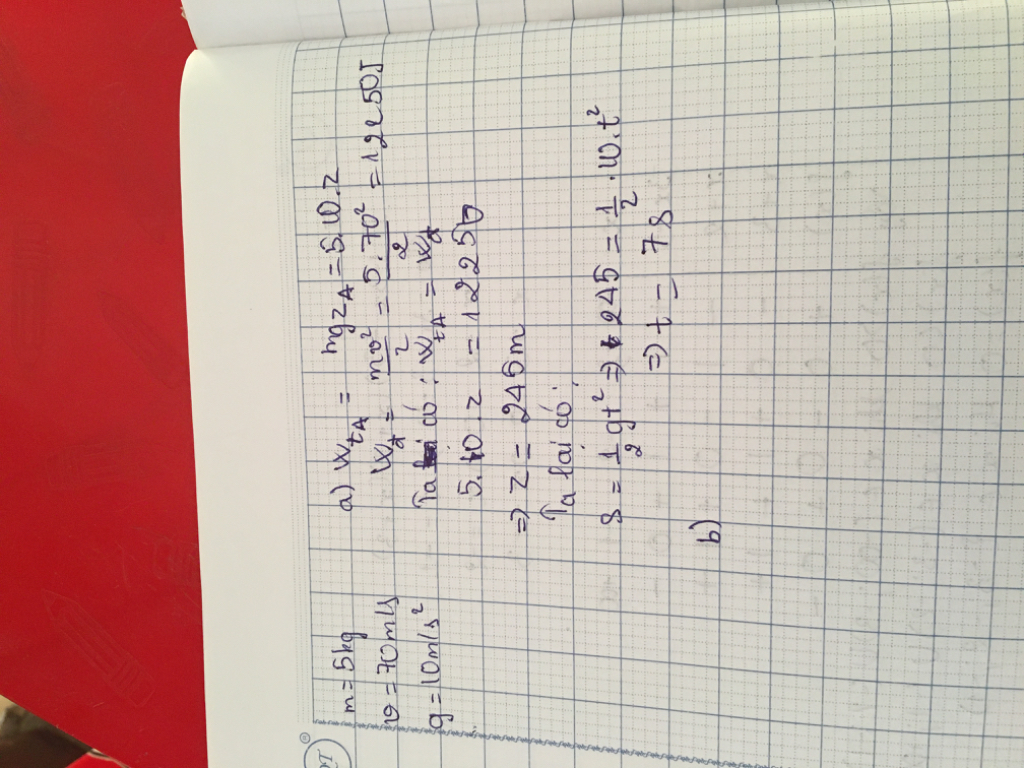 m = 5kg
v = 70m/s
g = 10m/s²
a) WtA = mgzA = 5.10.z
Wđ = mv²/2 = 5.70²/2 = 12250J
Ta có: WtA = Wđ
5.10.z = 12250
=> z = 245m
Ta lại có:
s = 1/2 gt² => 245 = 1/2 .10.t²
=> t = 7s
b)